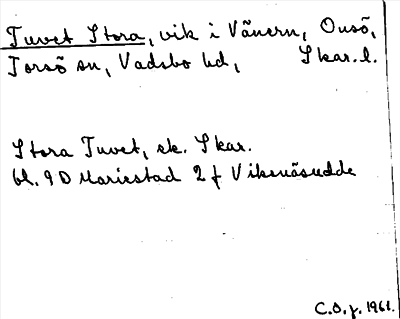 Tuvet Stora, vik i Vänern, Onsö,
Torsö sn, Vadsbo hd, Skar. l.
Stora Tuvet, ek. Skar.
bl. 9 D Mariestad 2 f Viksnäsudde
C.O.j. 1961.